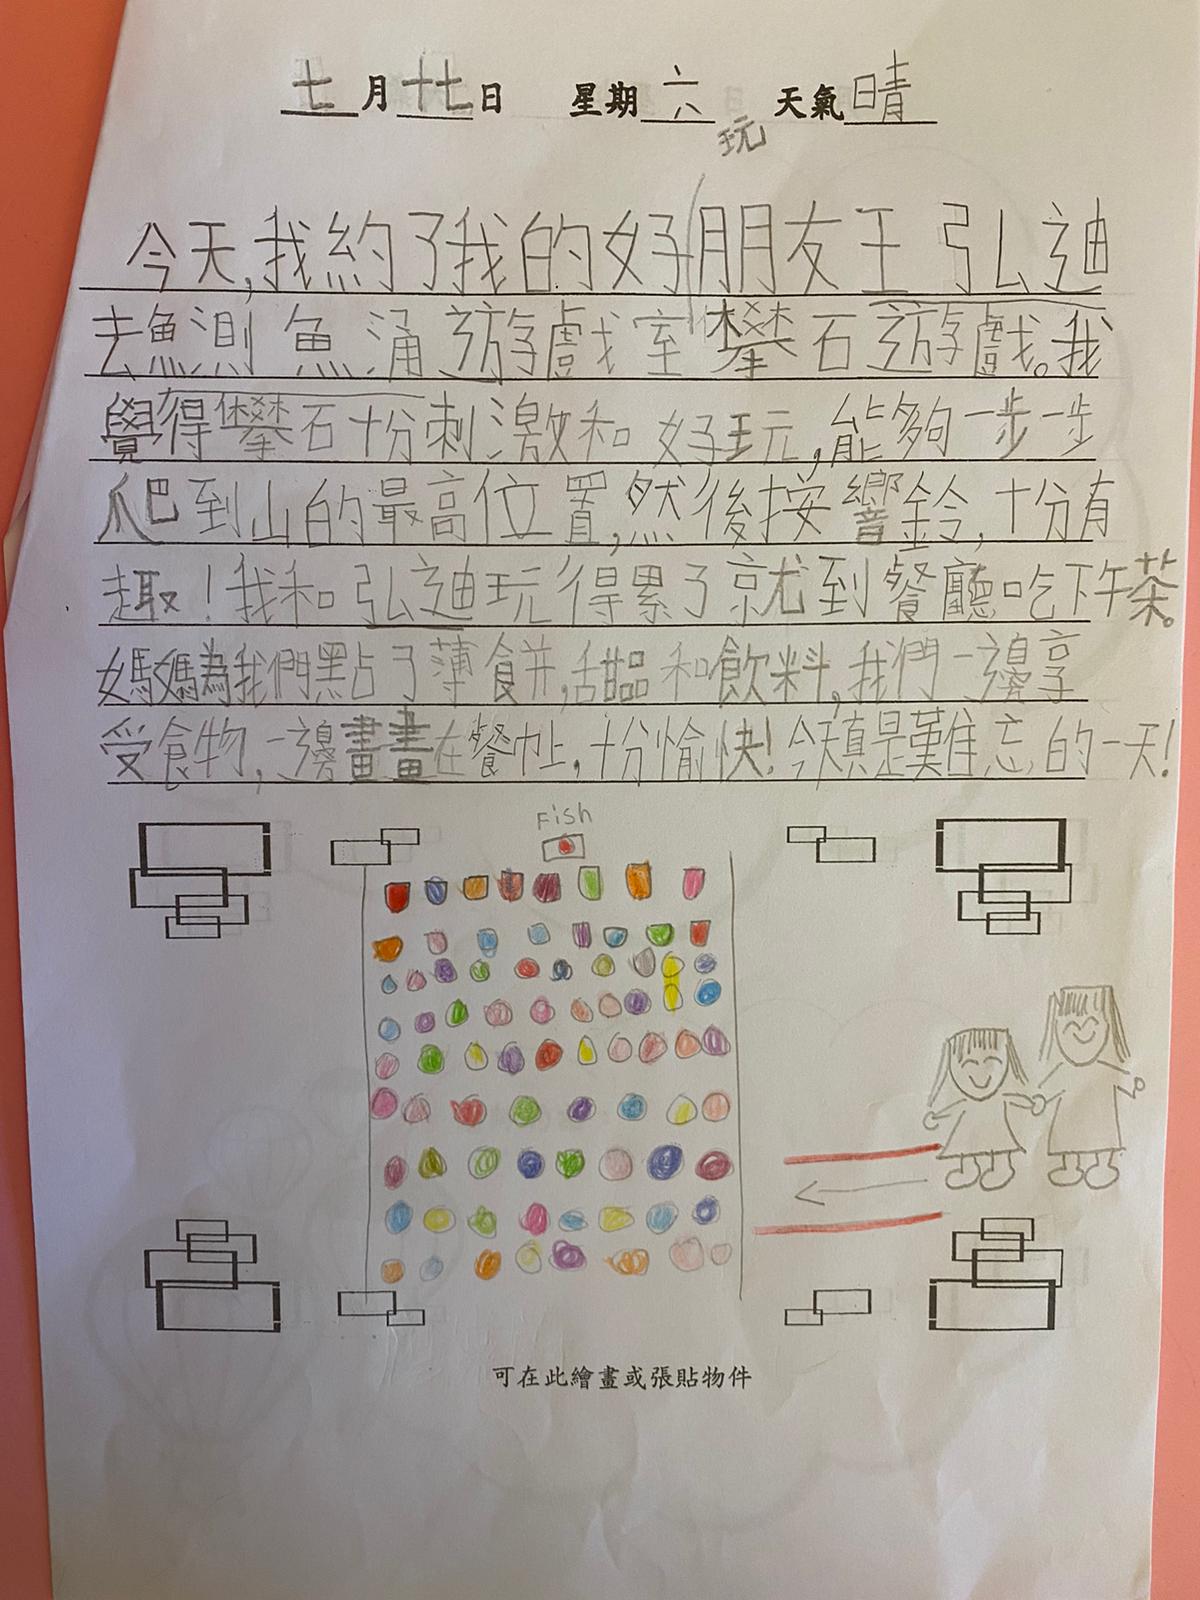 七月十七日 星期六 天氣晴
玩
今天,我約了我的好朋友王弘迪
去魚測魚涌遊戲室攀石遊戲。我
覺得攀石十份刺激和好玩,能夠一步一步
爬到山的最高位置,然後按響鈴,十分有
趣!我和弘迪玩得累了就到餐廳吃下午茶。
媽媽為我們點了薄餅,甜品和飲料,我們一邊享
受食物,一邊畫畫在餐巾上,十分愉快!今天真是難忘的一天!
Fish
可在此繪畫或張貼物件